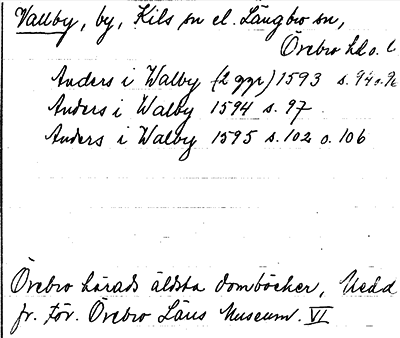 Vallby, by, Kils sn el. Längbro sn,
Örebro hd o. l
Anders i Walby (2 ggr) 1593 s. 94 o. 96
Anders i Walby 1594 s. 97
Anders i Walby 1595 s. 102 o. 106
Örebro härads äldsta domböcker, Medd
fr. För. Örebro Läns Museum. VI